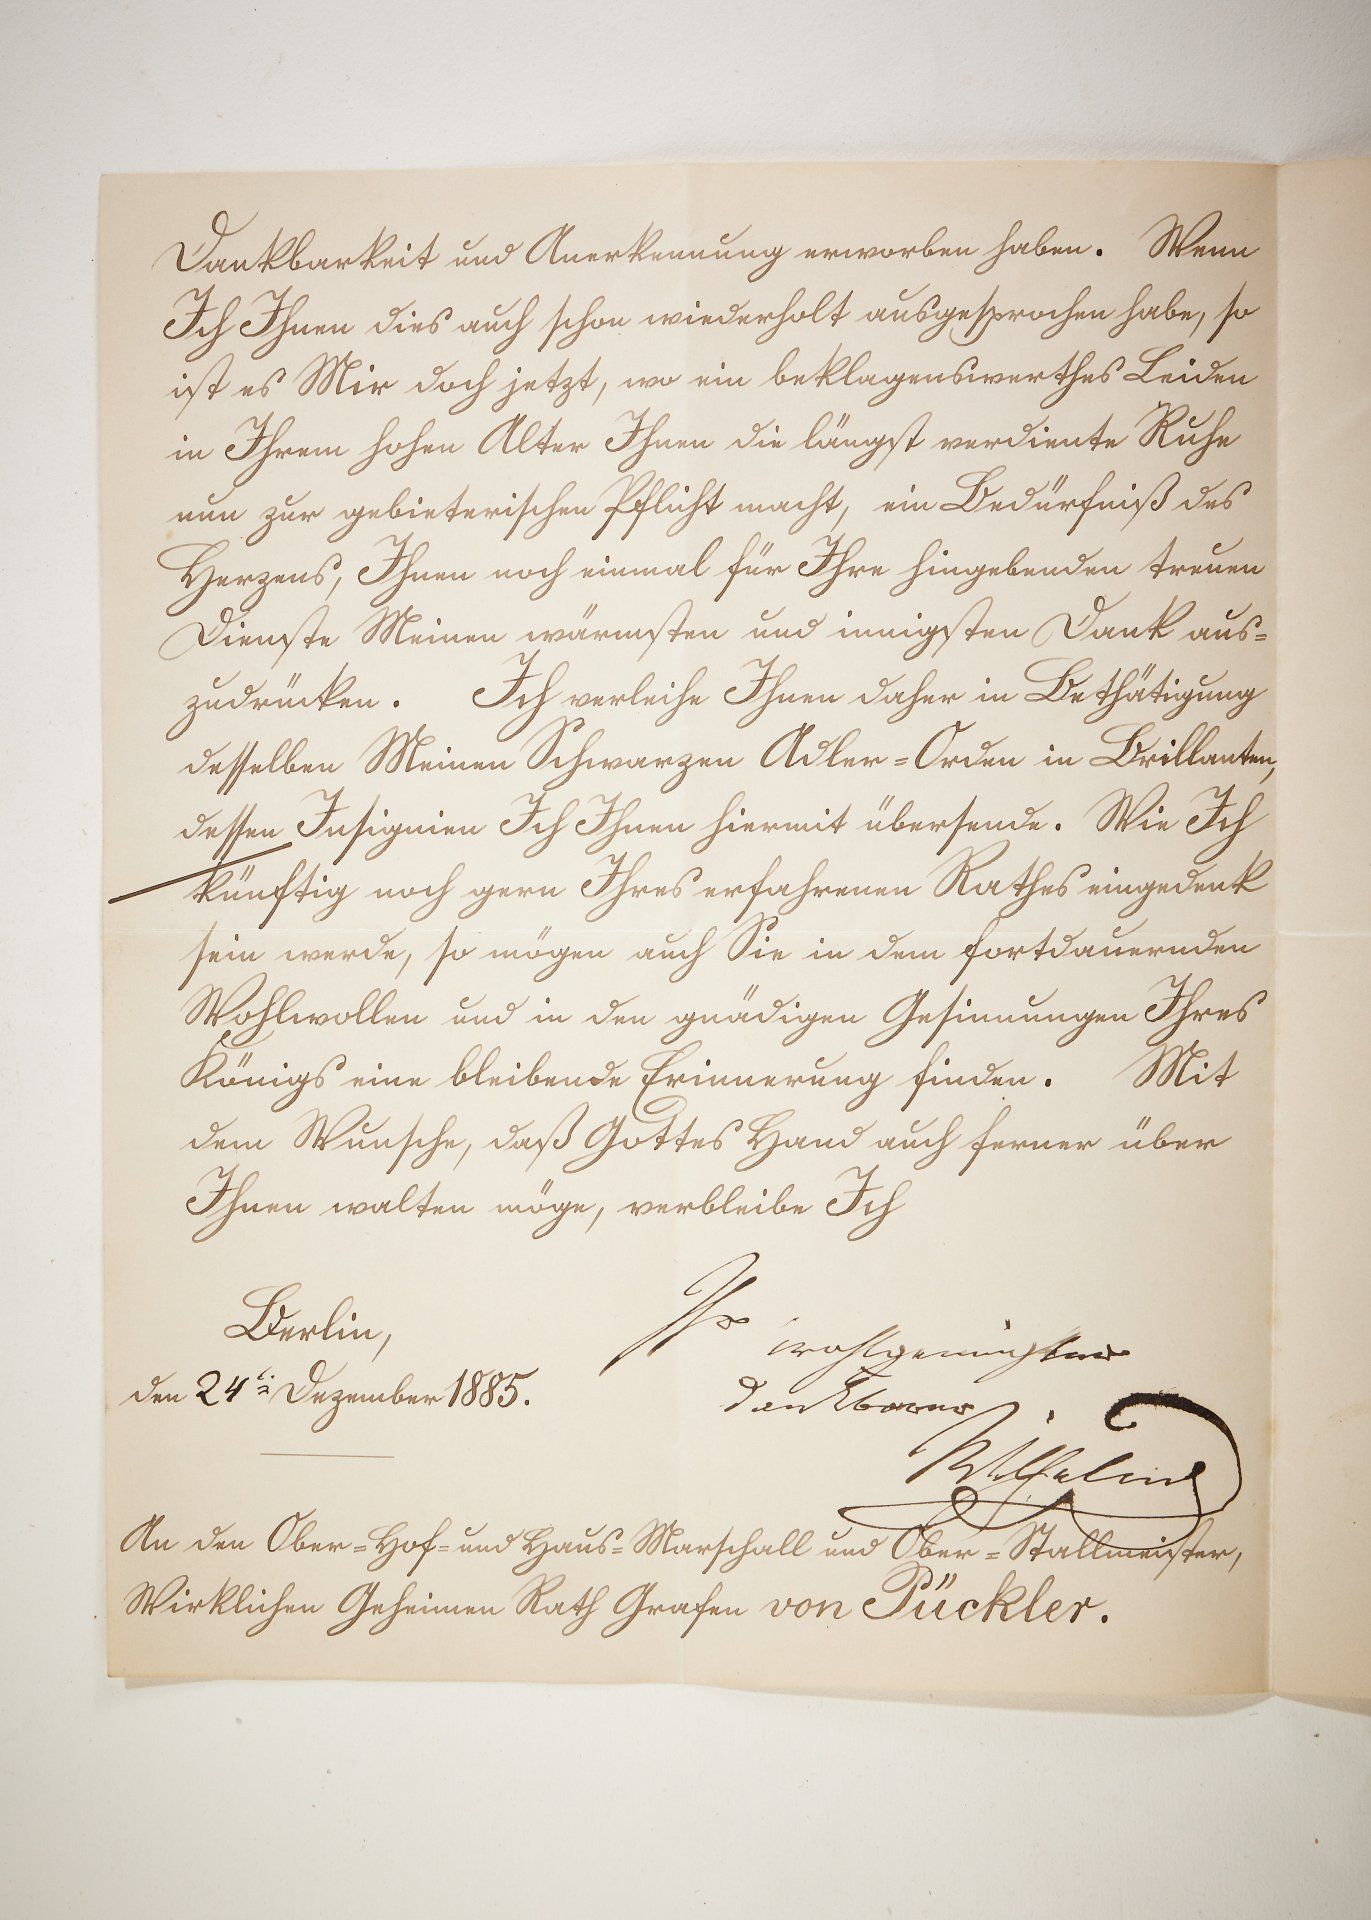 Dankbarkeit und Anerkennung erworben haben. Wenn
Ich Ihnen dies auch schon wiederholt ausgesprochen habe, so
ist es Mir doch jetzt, wo ein beklagenswerthes Leiden
in Ihrem hohen Alter Ihnen die längst verdiente Ruhe
nun zur gebieterischen Pflicht macht, ein Bedürfniß des
Herzens, Ihnen noch einmal für Ihre hingebenden treuen
Dienste Meinen wärmsten und innigsten Dank aus=
zudrücken. Ich verleihe Ihnen daher in Bethätigung
desselben Meinen Schwarzen Adler=Orden in Brillanten,
dessen Insignien Ich Ihnen hiermit übersende. Wie Ich
künftig noch gern Ihres erfahrenen Rathes eingedenk
sein werde, so mögen auch Sie in dem fortdauernden
Wohlwollen und in den gnädigen Gesinnungen Ihres
Königs eine bleibende Erinnerung finden. Mit
dem Wunsche, daß Gottes Hand auch ferner über
Ihnen walten möge, verbleibe Ich
Ihr
Berlin,
wohlgeneigter
den 24ten Dezember 1885.
dankbarer
Wilhelm
An den Ober=Hof=und Haus=Marschall und Ober=Stallmeister,
Wirklichen Geheimen Rath Grafen von Pückler.